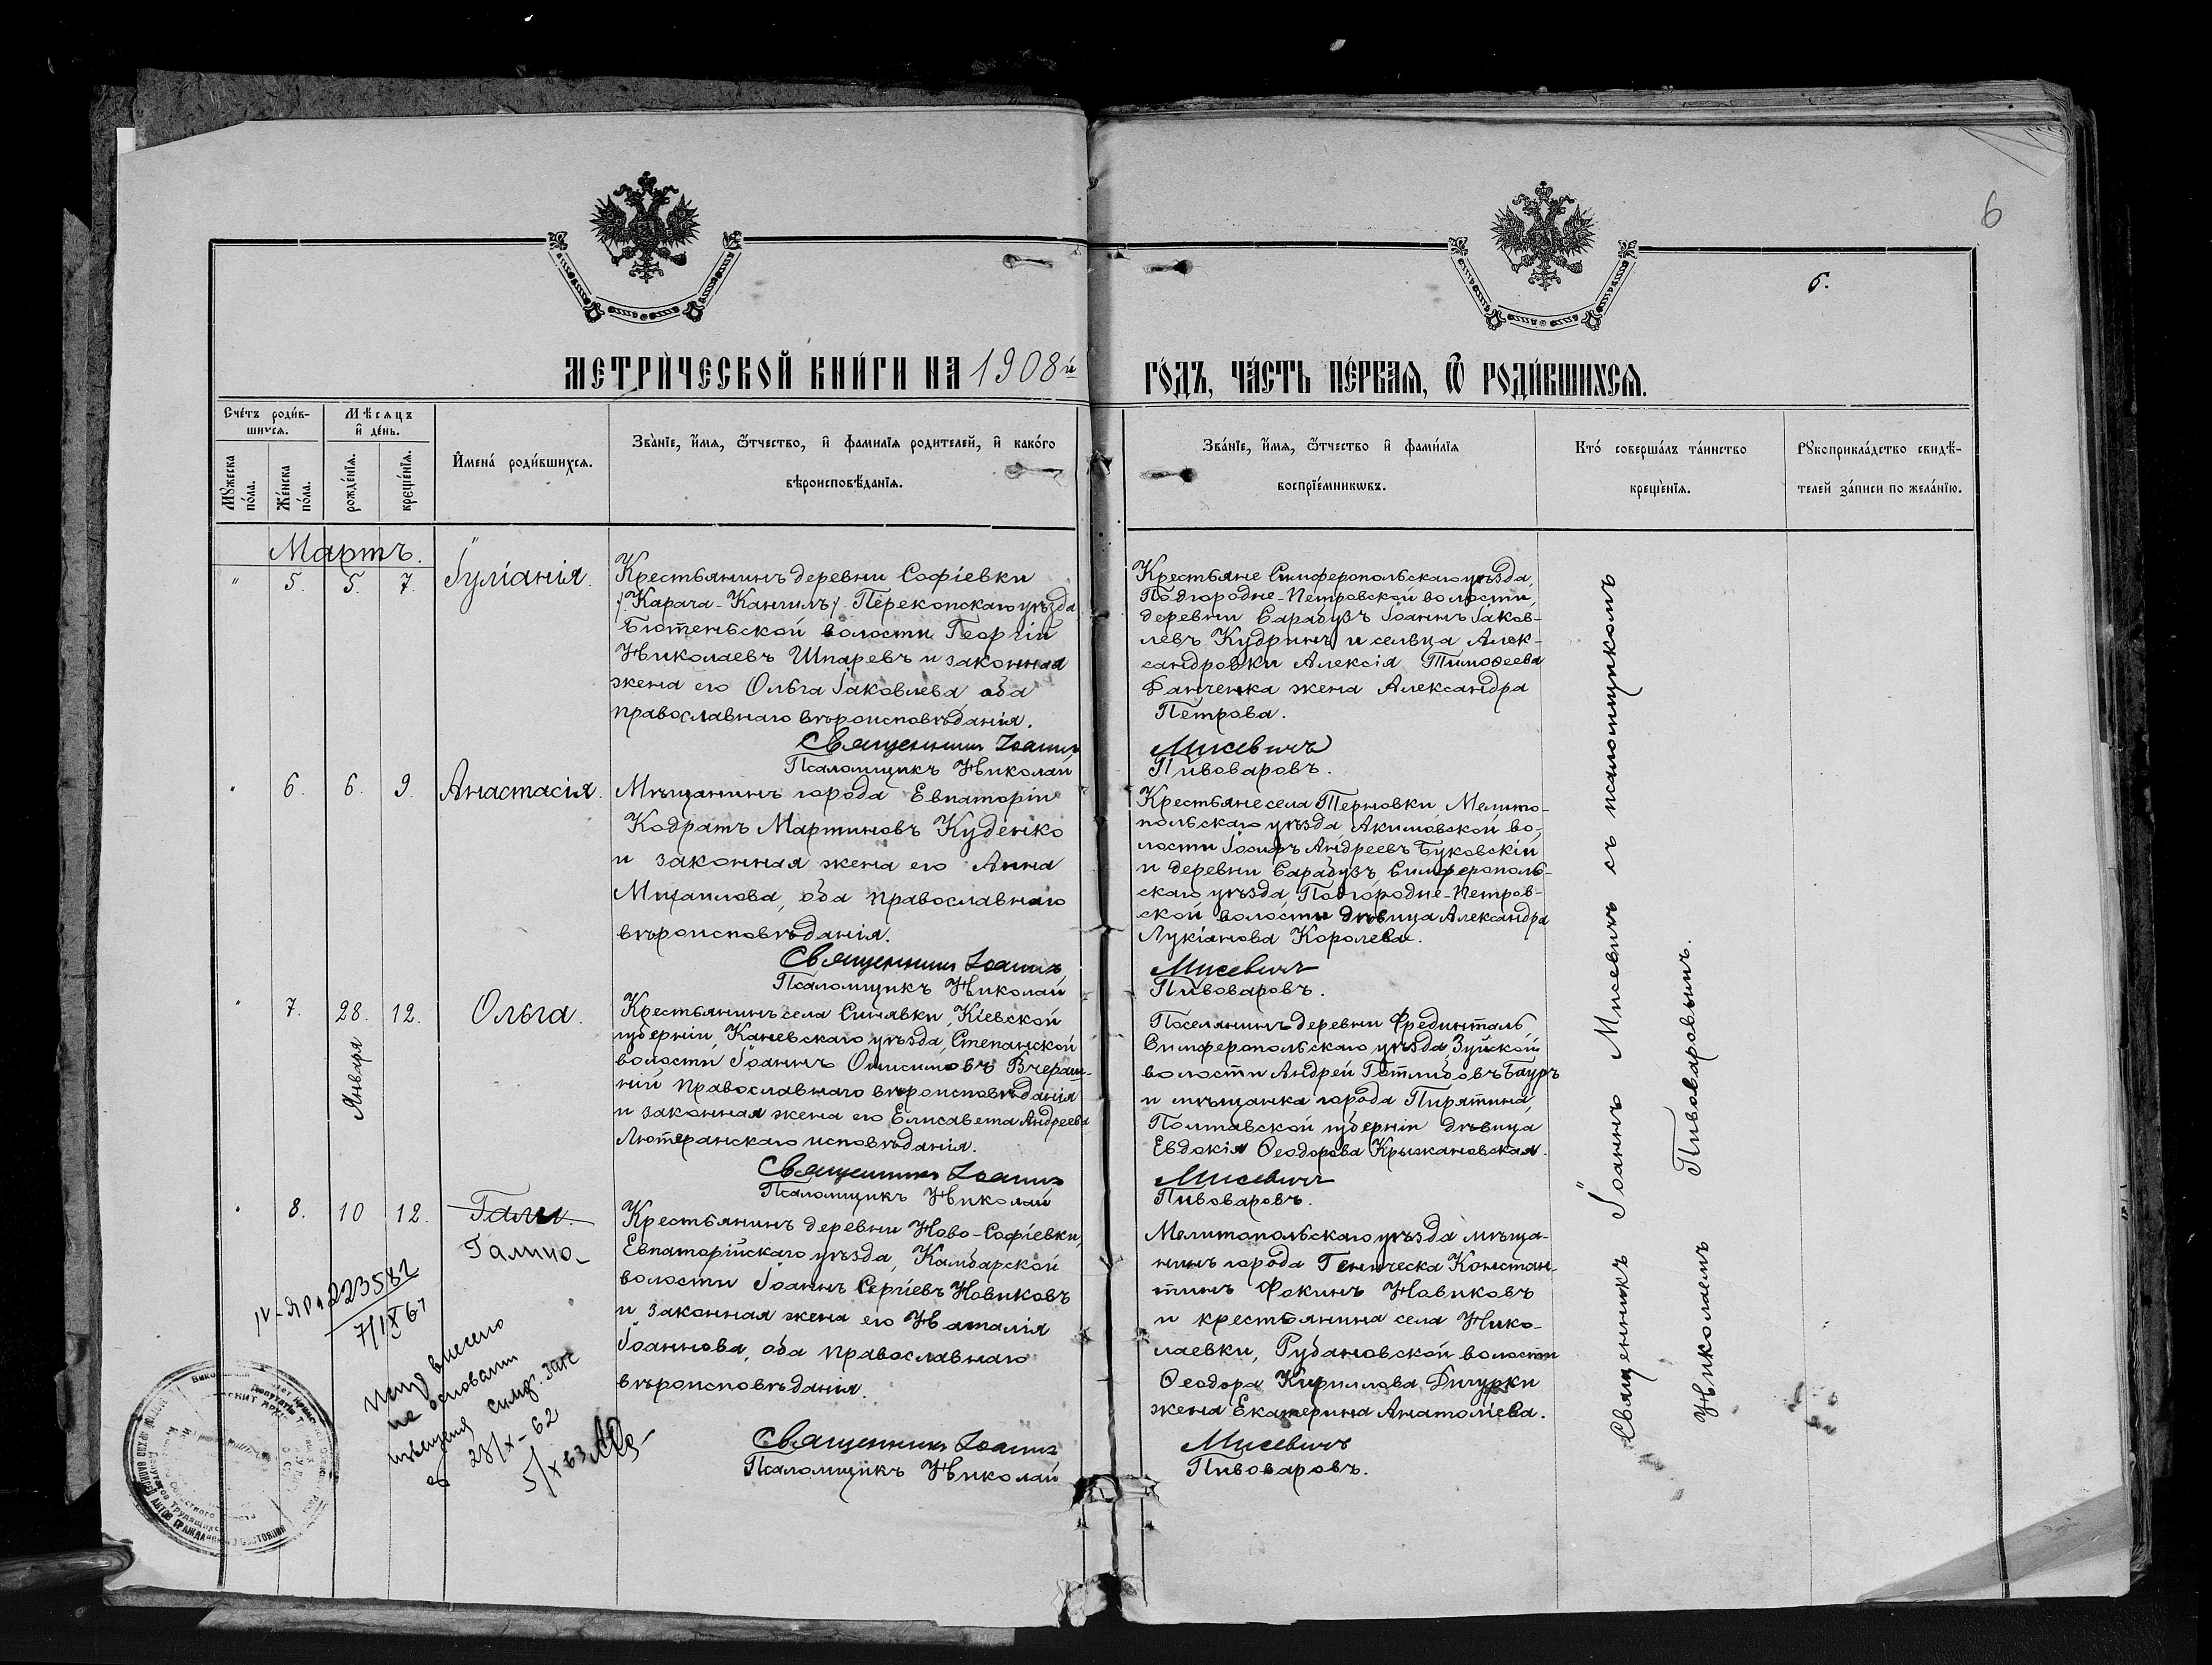 6
6.
МЕТРИ́ЧЕСКОЙ КНИ́ГИ НА 1908й
ГО́ДЪ, ЧА́СТЬ ПЕ́РВАѦ, Ѿ РОДИ́ВШИХСѦ.
Сче́тъ роди́в-
шихсѧ.
Мѣсѧцъ
и҆ де́нь.
Мꙋжеска
по́ла.
Же́нска
по́ла.
рожде́нїѧ.
креще́нїѧ.
И҆мена́ роди́вшихсѧ.
Зва́нїе, и҆́мѧ, ѻ҆́тчество, и҆ фамилїѧ родителей, и҆ како́го
вѣроисповѣданїѧ.
Зва́нїе, и҆́мѧ, ѻ҆́тчество и҆ фами́лїѧ
воспрїе́мникѡвъ.
Кто́ соверша́лъ та́инство
креще́нїѧ.
Рꙋкоприкла́дство свидѣ́-
телей за́писи по жела́нїю.
Мартъ.
" 5. 5. 7. Іуліанія.
Крестьянинъ деревни Софіевки
/Карача-Кангилъ/. Перекопскаго уѣзда
Бютеньской волости Георгій
Николаевъ Шпаревъ и законная
жена его Ольга Іаковлева оба
православнаго вѣроисповѣданія.
Священникъ Іоаннъ
Псаломщикъ Николай
Крестьяне Симферопольскаго уѣзда,
Подгородне-Петровской волости,
деревни Сарабузъ Іоаннъ Іаков-
левъ Кудринъ и сельца Алек-
сандровки Алексія Тимоѳеева
Панченка жена Александра
Петрова.
Мисевичъ
Пивоваровъ.
6. 6. 9. Анастасія.
Мѣщанинъ города Евпаторіи
Кодратъ Мартиновъ Куденко
и законная жена его Анна
Михаилова, оба православнаго
вѣроисповѣданія.
Священникъ Іоаннъ
Псаломщикъ Николай
Крестьяне села Терновки Мелито-
польскаго уѣзда Акимовской во-
лости Іосифъ Андреевъ Буковскій
и деревни Сарабузъ, Симферополь-
скаго уѣзда Подгородне-Петров-
ской волости дѣвица Александра
Лукіанова Королева.
Мисевичъ
Пивоваровъ.
7. 28. 12. Ольга.
Января
Крестьянинъ села Синявки, Кіевской
губерніи, Каневскаго уѣзда, Степанской
волости Іоаннъ Онисимовъ Вчераш-
ній православнаго вѣроисповѣданія
и законная жена его Елисавета Андреева
Лютеранскаго исповѣданія.
Священникъ Іоаннъ
Псаломщикъ Николай
Поселянинъ деревни Фриденталь,
Симферопольскаго уѣзда Зуйской
волости Андрей Готлибовъ Бауръ
и мѣщанка города Пирятина,
Полтавской губерніи дѣвица
Евдокія Ѳеодорова Крыжановская.
Мисевичъ
Пивоваровъ.
8. 10 12. Гали
Галина
Крестьянинъ деревни Ново-Софіевки,
Евпаторійскаго уѣзда, Камбарской
волости Іоаннъ Сергіевъ Новиковъ
и законная жена его Наталія
Іоаннова, оба православнаго
вѣроисповѣданія.
Священникъ Іоаннъ
Псаломщикъ Николай
Мелитопольскаго уѣзда мѣща-
нинъ города Геническа Констан-
тинъ Фокинъ Новиковъ
и крестьянина села Нико-
лаевки, Рубановской волости
Ѳеодора Кириллова Дигурки
жена Екатерина Анатоліева.
Мисевичъ
Пивоваровъ.
Священникъ Іоаннъ Мисевичъ съ псаломщикомъ
Николаемъ Пивоваровымъ.
223582
7/IX 61
внесено
на основании
извещения симф. загс
23/X-62
5/X 63